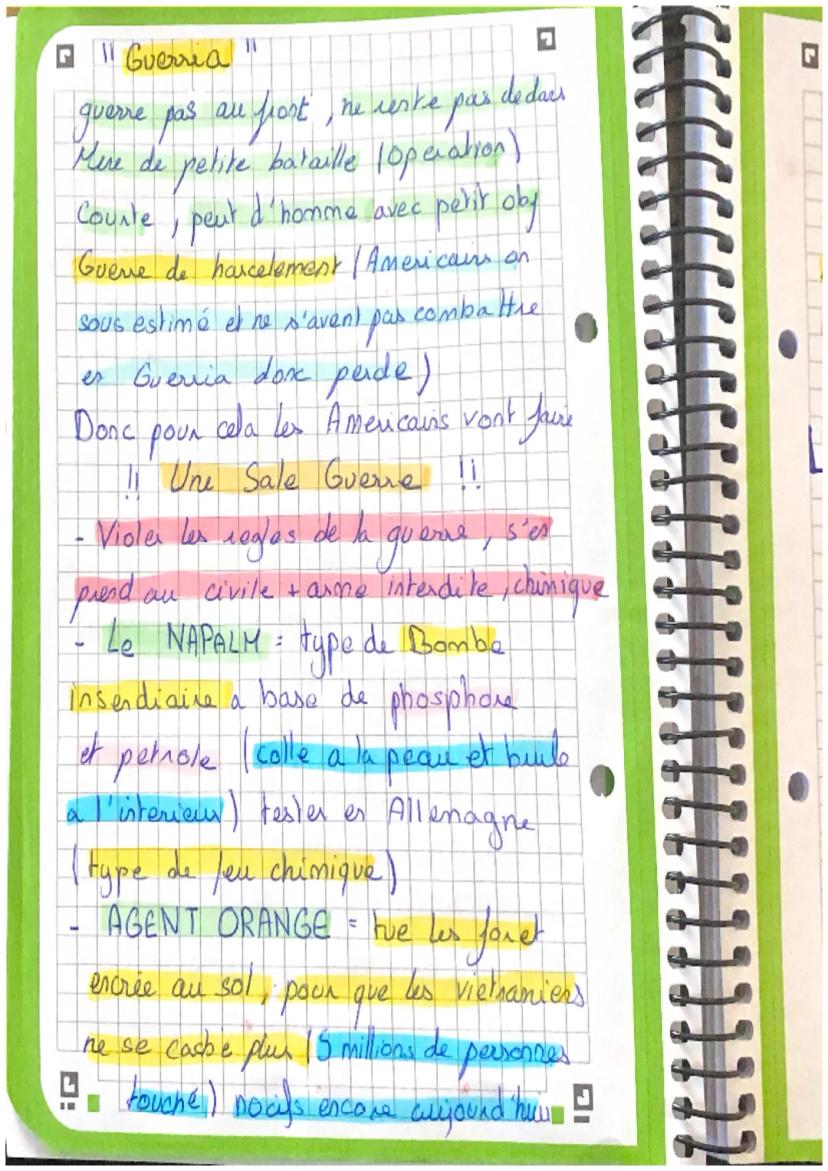 " Guerria "
guerre pas au front, ne rente pas dedans
Mene de petite bataille (operation)
Courte, peut d'homme avec petit obj
Guerre de harcelement (Americains on
sous estimé et ne s'avent pas combattre
en Guerria donc perde)
Donc pour cela les Americains vont faire
!! Une Sale Guerre !!
- Violer les regles de la guerre, s'en
prend au civile + arme interdite, chimique
- Le NAPALM = type de Bombe
insendiaire a base de phosphore
et petrole (colle a la peau et brule
a l'interieur) tester en Allemagne
(type de feu chimique)
- AGENT ORANGE = tue les foret
encrée au sol, pour que les vietnamiens
ne se cache plus (5 millions de personnes
touché) nocifs encore aujourd'hui